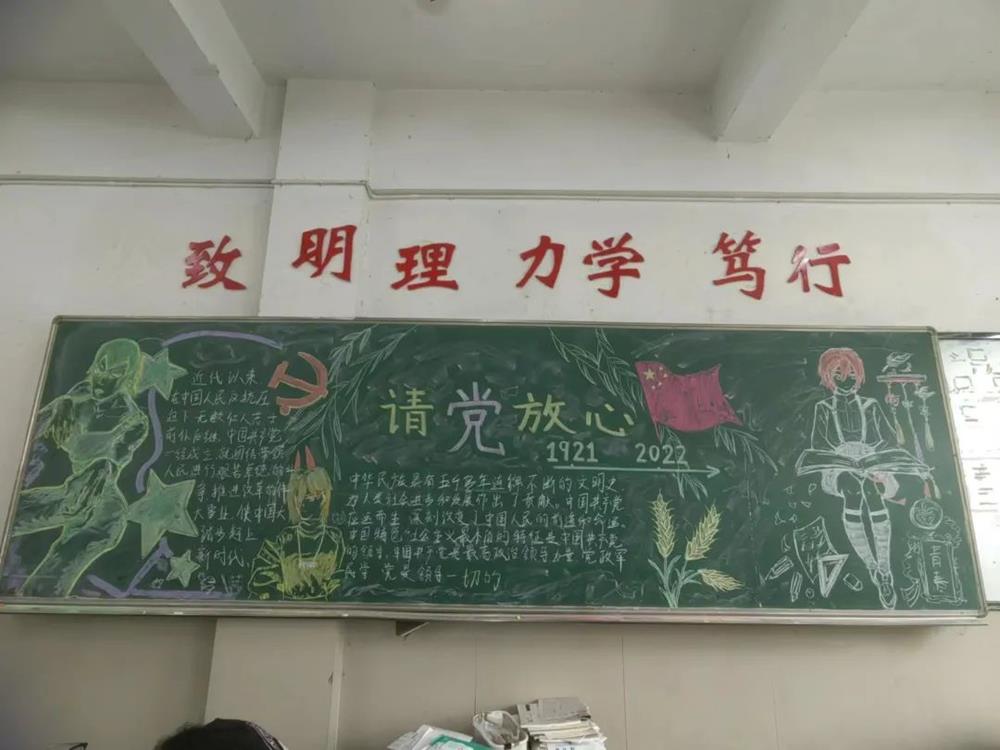 致 明 理 力 学 笃 行
请党放心
1921 2022
近代以来
在中国人民反抗压
迫下无数仁人志士
前仆后继.中国共产党
一经成立就团结带领
人民进行
推进改革的伟
大事业,使中国大
踏步赶上
新时代,
中华民族是有五千多年 不断的文明之
为人类社会进步和发展作出了贡献。中国共产党
应运而生 深刻改变了中国人民的前途和命运。
中国特色社会主义最本质的特征是中国共产党
的领导,中国共产党是最高政治领导力量 党政军
民学 党是领导一切的
青春